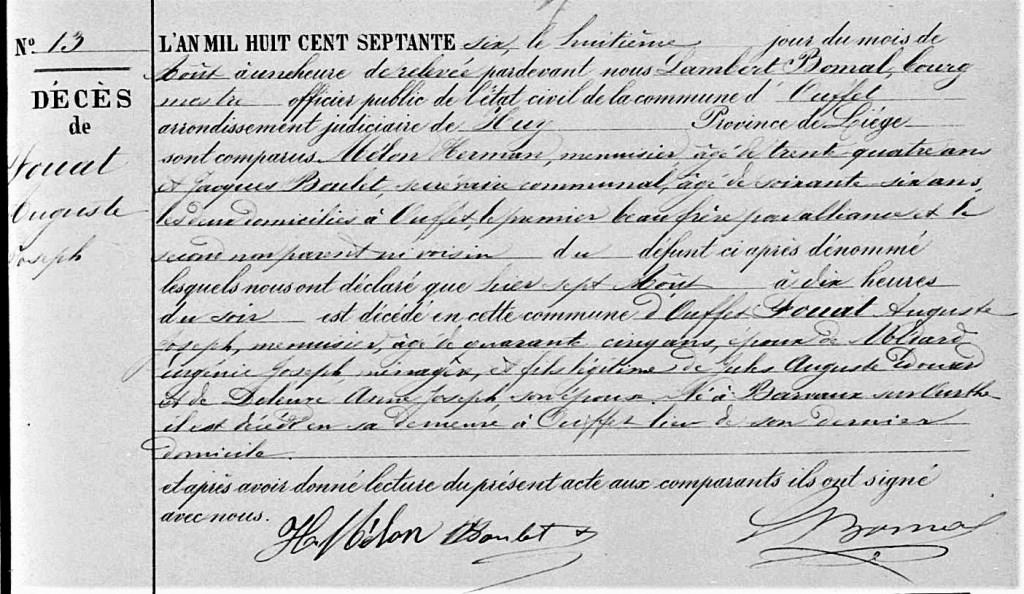 N° 13
DÉCÈS
de
Fouat
Auguste
Joseph
L'AN MIL HUIT CENT SEPTANTE six, le huitième jour du mois de
Août à une heure de relevée pardevant nous Lambert Bomal, bourg
mestre officier public de l'état civil de la commune d' Ouffet
arrondissement judiciaire de Huy Province de Liége
sont comparus Mélon Herman, menuisier, âgé de trente quatre ans
et Jacques Boulet, secrétaire communal, âgé de soixante-six ans,
les deux domiciliés à Ouffet, le premier beau frère par alliance et le
second non parent ni voisin du défunt ci après dénommé
lesquels nous ont déclaré que hier sept Août à dix heures
du soir est décédé en cette commune d'Ouffet Fouat Auguste
Joseph, menuisier, âgé de quarante cinq ans, époux de
Eugénie Joseph, ménagère, et fils légitime de Jules Auguste Edouard
et de Anne Joseph son épouse. Né à Barvaux sur Ourthe
il est décédé en sa demeure à Ouffet lieu de son dernier
domicile.
et après avoir donné lecture du présent acte aux comparants ils ont signé
avec nous.
H. Mélon Boulet L Bomal